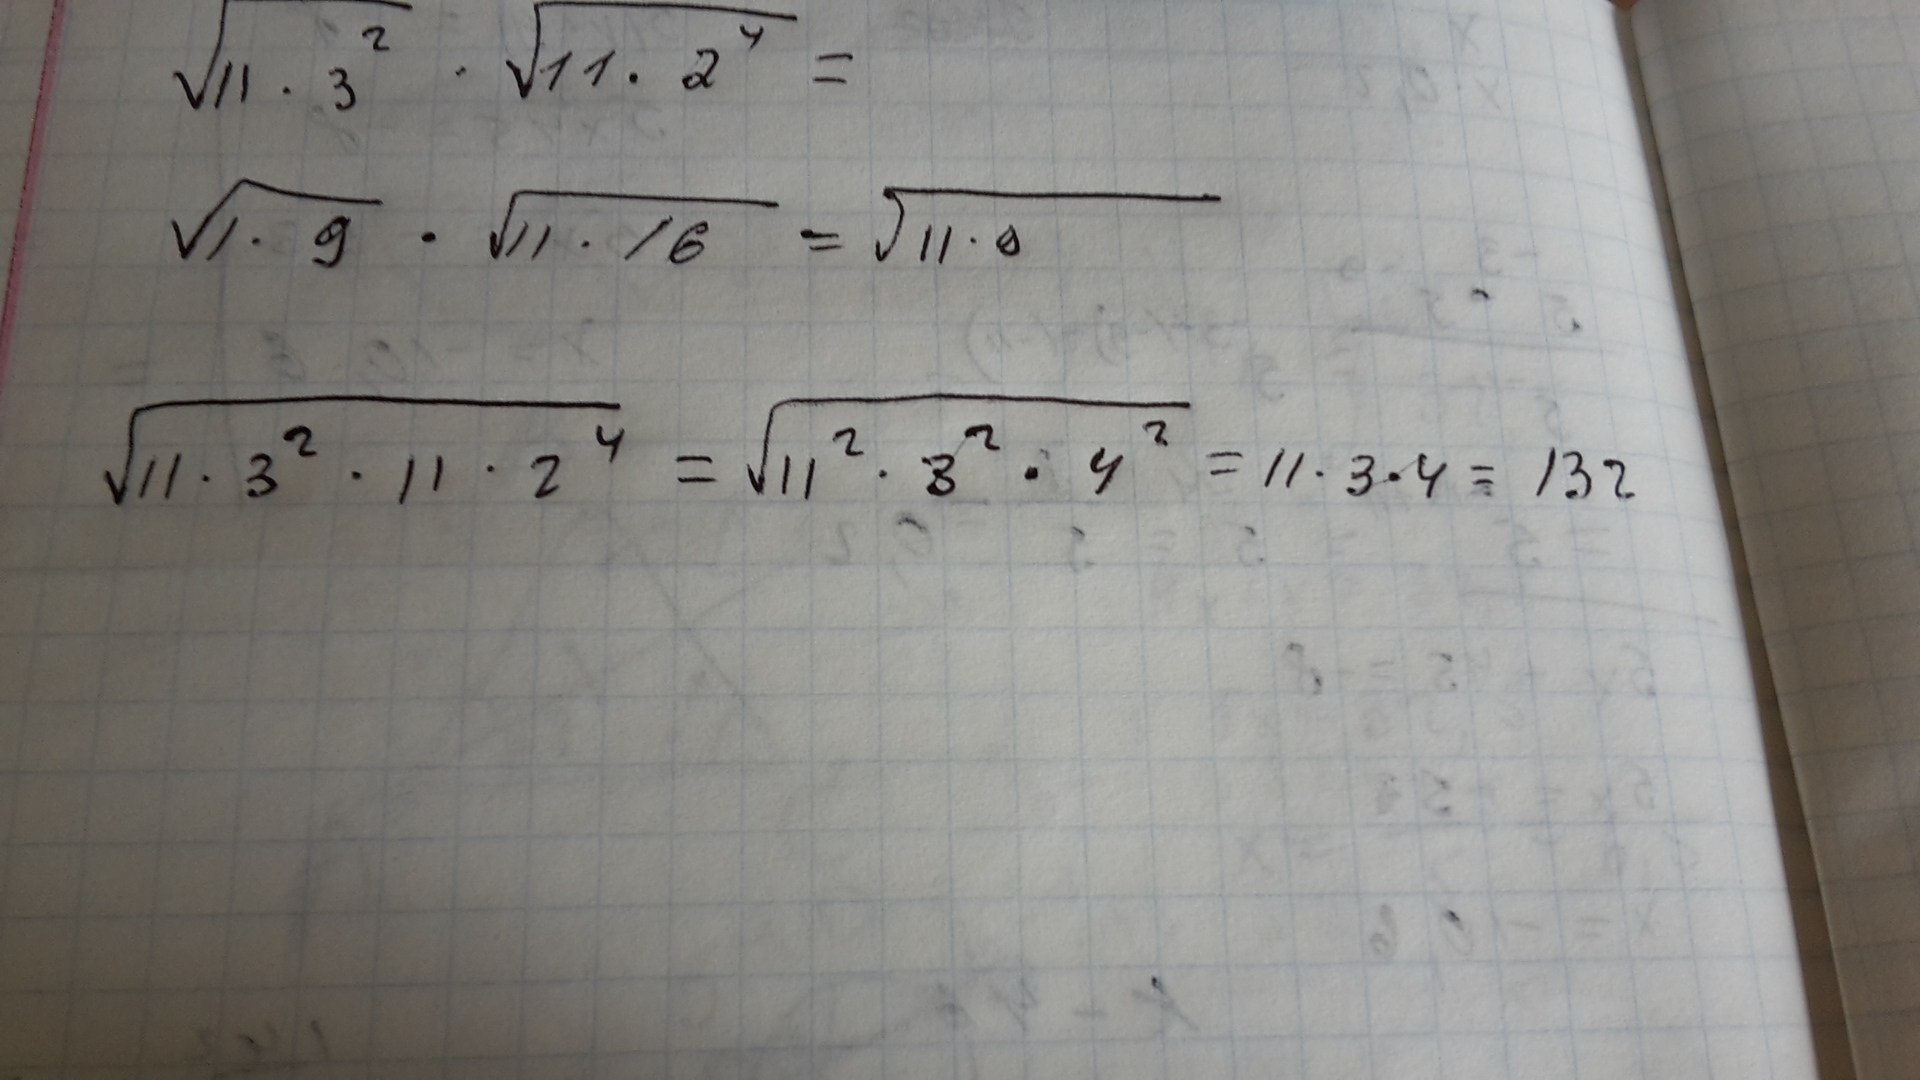 √11·3² · √11·2⁴ =
√1·9 · √11·16 = √11·
√11·3²·11·2⁴ = √11²·3²·4² = 11·3·4 = 132